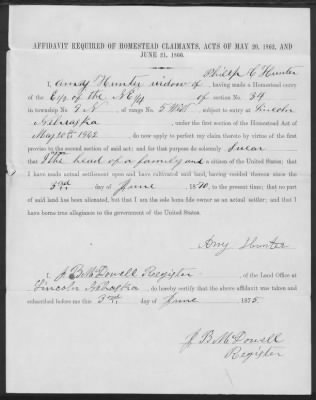 AFFIDAVIT REQUIRED OF HOMESTEAD CLAIMANTS, ACTS OF MAY 20, 1862, AND
JUNE 21, 1866.
Philip C Hunter
I, Amy Hunter widow of, having made a Homestead entry
of the E½ of the N.E¼ of section No.
in township No. 9 N, of range No. 5 West subject to entry at Lincoln
Nebraska, under the first section of the Homestead Act
of May 20th 1862, do now apply to perfect my claim thereto by virtue of the first
proviso to the second section of said act; and for that purpose do solemnly Swear
that I the head of a family and a citizen of the United States; that I
have made actual settlement upon and have cultivated said land, having resided thereon since the
day of June 1870, to the present time; that no part
of said land has been alienated, but that I am the sole bona fide owner as an actual settler; and that I
have borne true allegiance to the government of the United States.
Amy Hunter
I, J B McDowell Register, of the Land Office at
Lincoln Nebraska, do hereby certify that the above affidavit was taken and
subscribed before me this 3rd day of June 1875.
J B McDowell
Register